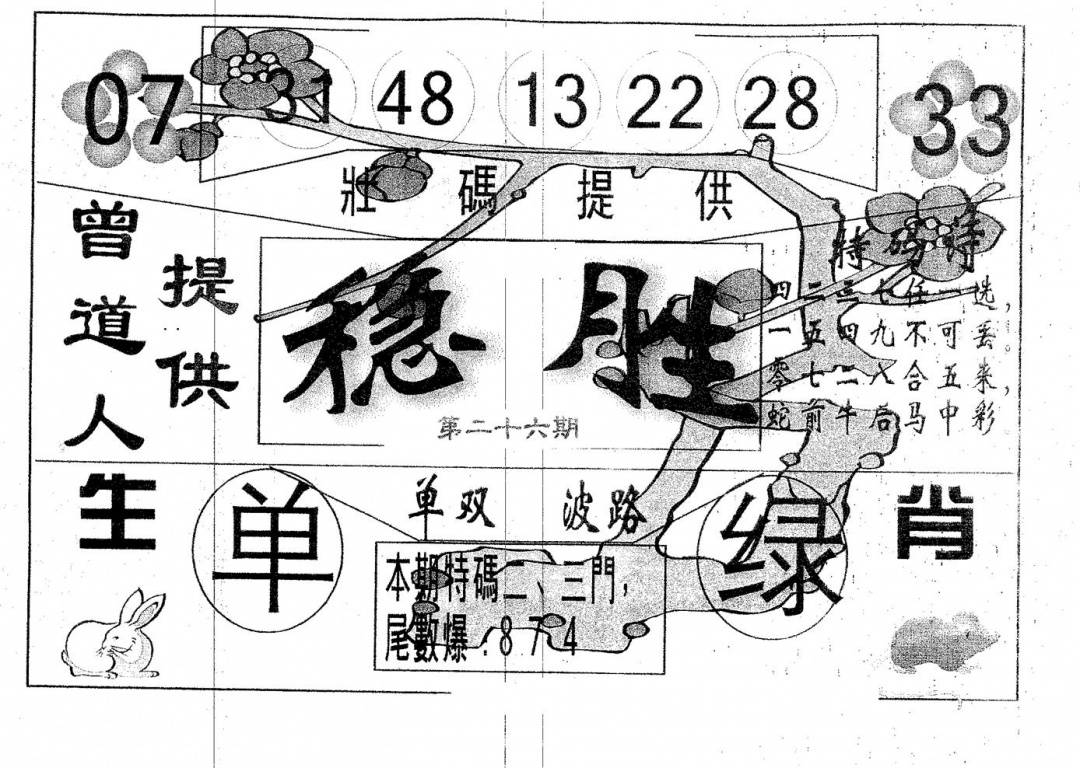 07 31 48 13 22 28 33
壯碼提供
曾道人
提供
稳胜
第二十六期
特码诗
四二三七任一选，
一五四九不可丢。
零七二八合五来，
蛇前牛后马中彩
生
单
单双 波路
绿
肖
本期特碼二、三門，
尾數爆：874